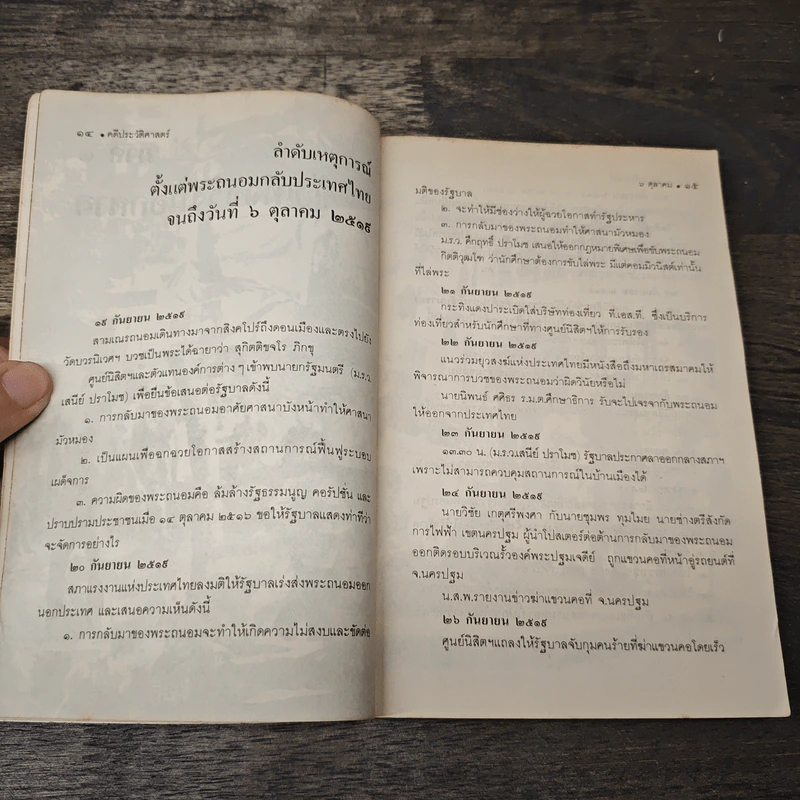 ๑๔ • คดีประวัติศาสตร์
ลำดับเหตุการณ์
ตั้งแต่พระถนอมกลับประเทศไทย
จนถึงวันที่ ๖ ตุลาคม ๒๕๑๙
๑๙ กันยายน ๒๕๑๙
สามเณรถนอมเดินทางมาจากสิงคโปร์ถึงดอนเมืองและตรงไปยัง
วัดบวรนิเวศฯ บวชเป็นพระได้ฉายาว่า สุกิตติขจโร ภิกขุ
ศูนย์นิสิตฯและตัวแทนองค์การต่าง ๆ เข้าพบนายกรัฐมนตรี (ม.ร.ว.
เสนีย์ ปราโมช) เพื่อยื่นข้อเสนอต่อรัฐบาลดังนี้
๑. การกลับมาของพระถนอมอาศัยศาสนาบังหน้าทำให้ศาสนา
มัวหมอง
๒. เป็นแผนเพื่อฉกฉวยโอกาสสร้างสถานการณ์ฟื้นฟูระบอบ
เผด็จการ
๓. ความผิดของพระถนอมคือ ล้มล้างรัฐธรรมนูญ คอรัปชั่น และ
ปราบปรามประชาชนเมื่อ ๑๔ ตุลาคม ๒๕๑๖ ขอให้รัฐบาลแสดงท่าทีว่า
จะจัดการอย่างไร
๒๐ กันยายน ๒๕๑๙
สภาแรงงานแห่งประเทศไทยลงมติให้รัฐบาลเร่งส่งพระถนอมออก
นอกประเทศ และเสนอความเห็นดังนี้
๑. การกลับมาของพระถนอมจะทำให้เกิดความไม่สงบและขัดต่อ
๖ ตุลาคม • ๑๕
มติของรัฐบาล
๒. จะทำให้มีช่องว่างให้ผู้ฉวยโอกาสทำรัฐประหาร
๓. การกลับมาของพระถนอมทำให้ศาสนามัวหมอง
ม.ร.ว. คึกฤทธิ์ ปราโมช เสนอให้ออกกฎหมายพิเศษเพื่อขับพระถนอม
กิตติวุฒโฑ ว่านักศึกษาต้องการขับไล่พระ มีแต่คอมมิวนิสต์เท่านั้น
ที่ไล่พระ
๒๑ กันยายน ๒๕๑๙
กระทิงแดงปาระเบิดใส่บริษัทท่องเที่ยว ที.เอส.ที. ซึ่งเป็นบริการ
ท่องเที่ยวสำหรับนักศึกษาที่ทางศูนย์นิสิตฯให้การรับรอง
๒๒ กันยายน ๒๕๑๙
แนวร่วมยุวสงฆ์แห่งประเทศไทยมีหนังสือถึงมหาเถรสมาคมให้
พิจารณาการบวชของพระถนอมว่าผิดวินัยหรือไม่
นายนิพนธ์ ศศิธร ร.ม.ต.ศึกษาธิการ รับจะไปเจรจากับพระถนอม
ให้ออกจากประเทศไทย
๒๓ กันยายน ๒๕๑๙
๑๓.๓๐ น. (ม.ร.ว.เสนีย์ ปราโมช) รัฐบาลประกาศลาออกกลางสภาฯ
เพราะไม่สามารถควบคุมสถานการณ์ในบ้านเมืองได้
๒๔ กันยายน ๒๕๑๙
นายวิชัย เกตุศรีพงศา กับนายชุมพร ทุมไมย นายช่างตรีสังกัด
การไฟฟ้า เขตนครปฐม ผู้นำโปสเตอร์ต่อต้านการกลับมาของพระถนอม
ออกติดรอบบริเวณรั้วองค์พระปฐมเจดีย์ ถูกแขวนคอที่หน้าอู่รถยนต์ที่
จ.นครปฐม
น.ส.พ.รายงานข่าวฆ่าแขวนคอที่ จ.นครปฐม
๒๖ กันยายน ๒๕๑๙
ศูนย์นิสิตฯแถลงให้รัฐบาลจับกุมคนร้ายที่ฆ่าแขวนคอโดยเร็ว